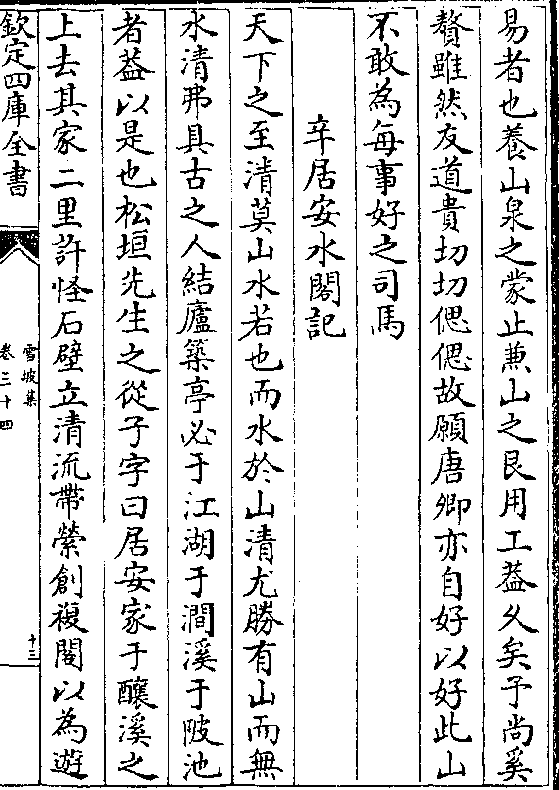 易者也養山泉之蒙止兼山之艮用工葢久矣予尚奚
贅雖然友道貴切切偲偲故願唐卿亦自好以好此山
不敢為每事好之司馬
辛居安水閣記
天下之至清莫山水若也而水於山清尤勝有山而無
水清弗具古之人結廬築亭必于江湖于澗溪于陂池
者葢以是也松垣先生之從子字曰居安家于釀溪之
上去其家二里許怪石壁立清流帶縈創複閣以為遊
欽定四庫全書
雪坡集
卷三十四
十三